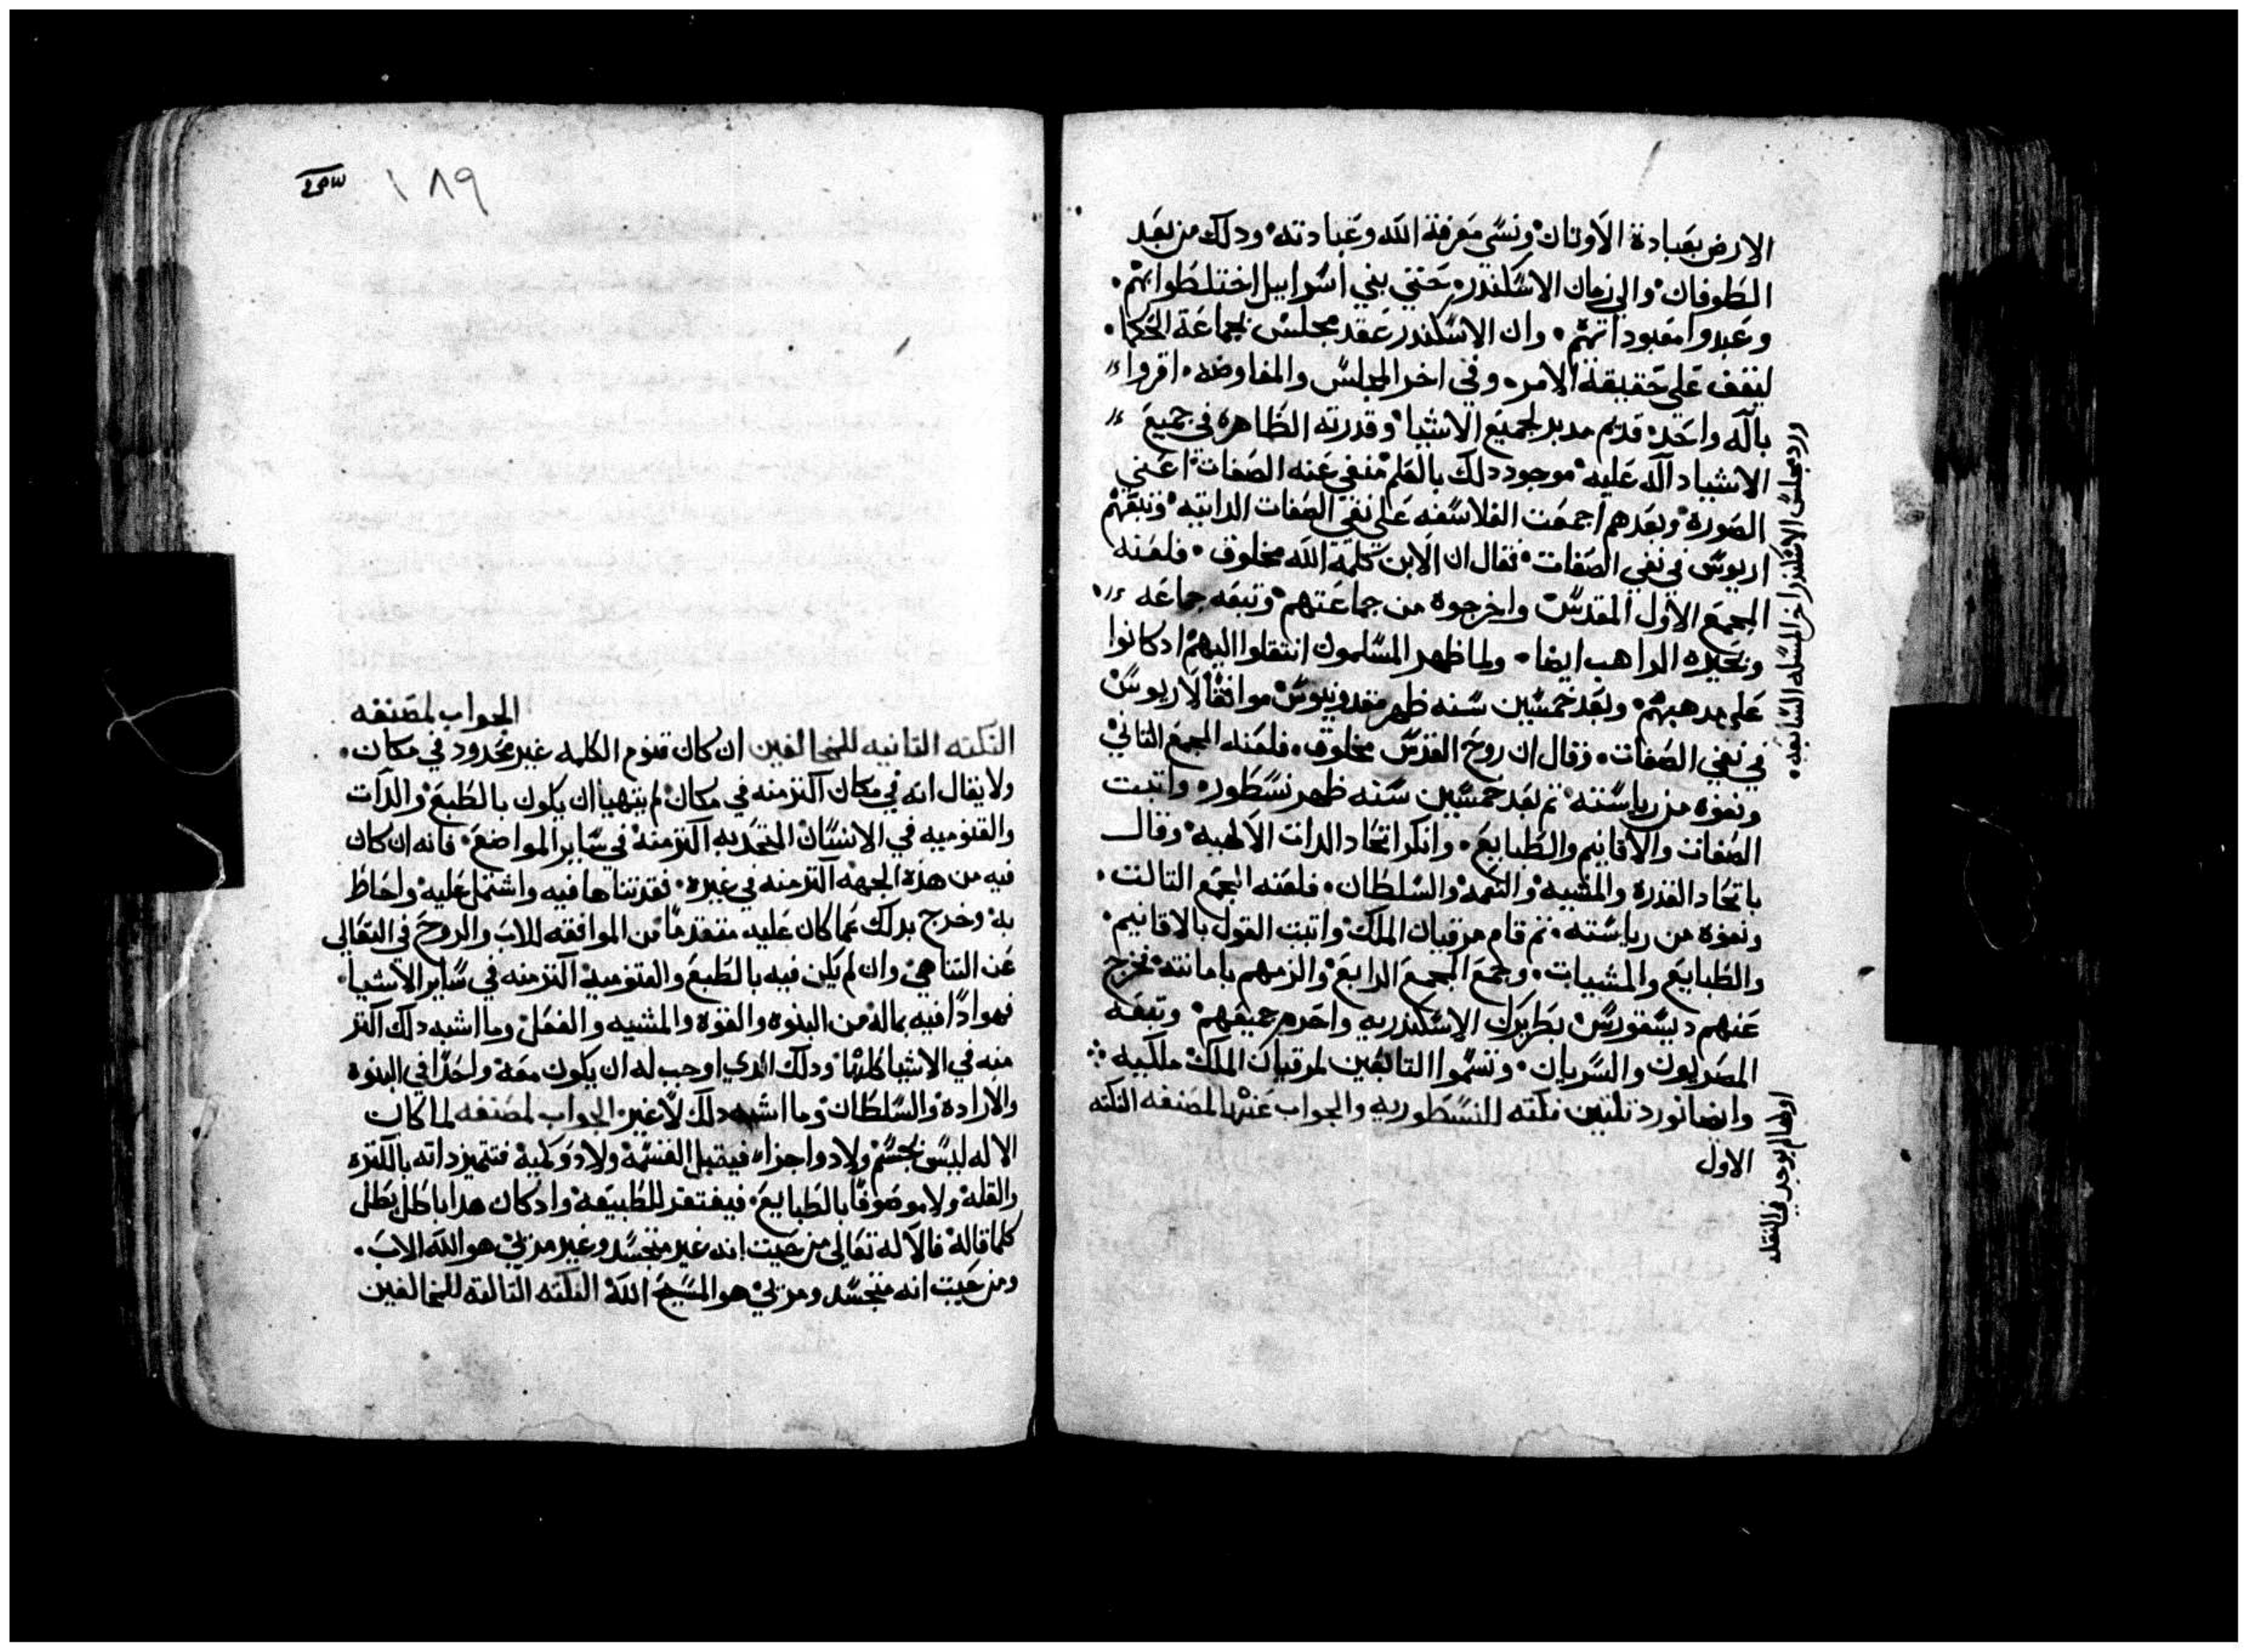 الارض بعبادة الاوتان ونسي معرفة الله وعبادته ودلك من بعد
الطوفان والي زمان الاسكندر حتي بني اسراييل اختلطوا بهم
وعبدوا معبوداتهم وان الاسكندر عقد مجلس بجماعة الحكما
ليقف علي حقيقة الامر وفي اخر المجلس والمفاوضه اقروا
بآله واحد قديم مدبر لجميع الاشيا وقدرته الظاهره في جميع
الاشيا دآله عليه موجود دلك بالعلم منفي عنه الصفات اعني
الصورة وبعدهم اجمعت الفلاسفه علي نفي الصفات الداتيه وتبعهم
اريوس في نفي الصفات فقال ان الابن كلمة الله مخلوق فلعنه
المجمع الاول المقدس واخرجوه من جماعتهم وتبعه جماعه
وبحيره الراهب ايضا ولما ظهر المسلمون انتقلوا اليهم اد كانوا
علي مدهبهم وبعد خمسين سنه ظهر مقدونيوس موافقا لاريوس
في نفي الصفات وقال ان روح القدس مخلوق فلعنه المجمع التاني
ونفوه من رياسته تم بعد خمسين سنه ظهر نسطور واتبت
الصفات والاقانيم والطبايع وانكر اتحاد الدات الالهيه وقال
باتحاد القدرة والمشيه والنعمه والسلطان فلعنه المجمع التالت
ونفوه من رياسته تم قام مرقيان الملك واتبت القول بالاقانيم
والطبايع والمشيات وجمع المجمع الرابع والزمهم بامانته فخرج
عنهم ديسقورس بطريرك الاسكندريه واحرم جميعهم وتبعه
المصريون والسريان وتسموا التابعين لمرقيان الملك ملكيه
وايضا نورد تلتين نكته للنسطوريه والجواب عنها لمصنفه النكته
الاول
ورد مجلس الاسكندر اخر المسله السابعه
اولها لم يوجد في النقله
١٨٩
الجواب لمصنفه
النكته التانيه للمخالفين ان كان قنوم الكلمه غير محدود في مكان
ولا يقال انه في مكان آكتر منه في مكان لم يتهيا ان يكون بالطبع والدات
والقنوميه في الانسان المتحد به آكتر منه في ساير المواضع فانه ان كان
فيه من هذه الجهه آكتر منه في غيره فقد تناها فيه واشتمل عليه واحاط
به وخرج بدلك عما كان عليه متقدما من الموافقه للاب والروح في التعالي
عن التناهي وان لم يكن فيه بالطبع والقنوميه آكتر منه في ساير الاشيا
فهو ادا فيه بماله من البنوه والقوه والمشيه والفعل وما اشبه دلك آكتر
منه في الاشيا كلها ودلك الدي اوجب له ان يكون معه واحدا في البنوه
والارادة والسلطان وما اشبه دلك لا غير الجواب لمصنفه لما كان
الاله ليس بجسم ولا دو اجزاء فيقبل القسمه ولا دو كميه فتتميز داته بالكتره
والقله ولا موصوفا بالطبايع فيفتقر للطبيعه واد كان هدا باطل بطل
كلما قاله فالآله تعالي من حيت انه غير متجسد وغير مرئي هو الله الاب
ومن حيت انه متجسد ومرئي هو المسيح الله النكته التالته للمخالفين